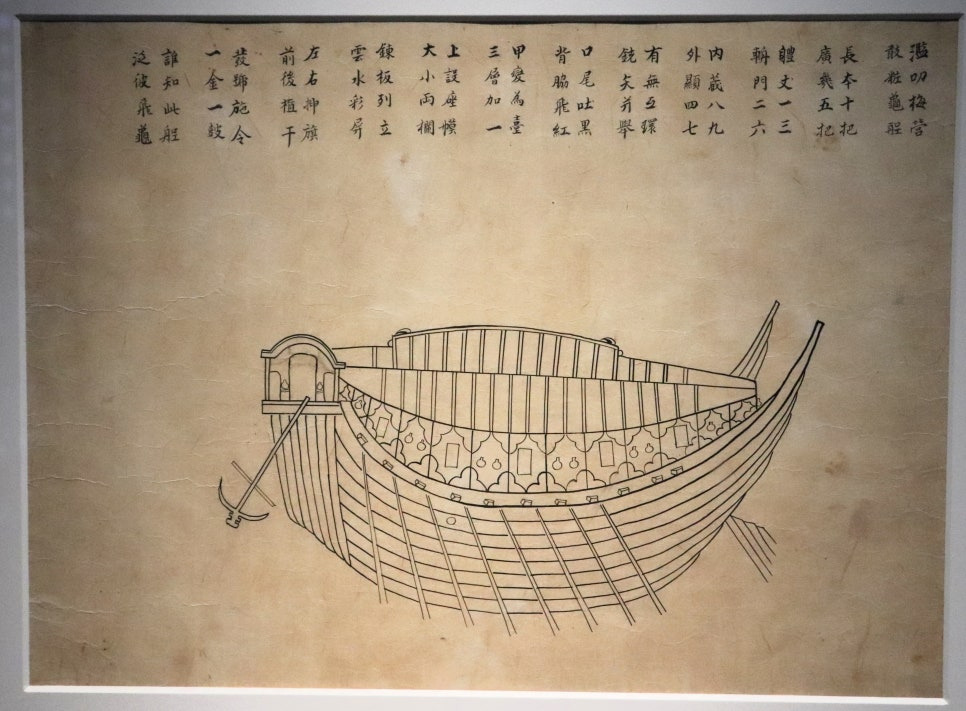 濫叨梅營
敢粧龜舡
長本十把
廣幾五把
體丈一三
門二六
內藏八九
外顯四七
有無互環
銃矢并擧
口尾吐黑
背脇飛紅
甲變為臺
三層加一
上設座幙
大小両欄
鍊板列立
雲水彩屏
左右抻旗
前後植干
發號施令
一金一鼓
誰知此舡
泛彼飛龜